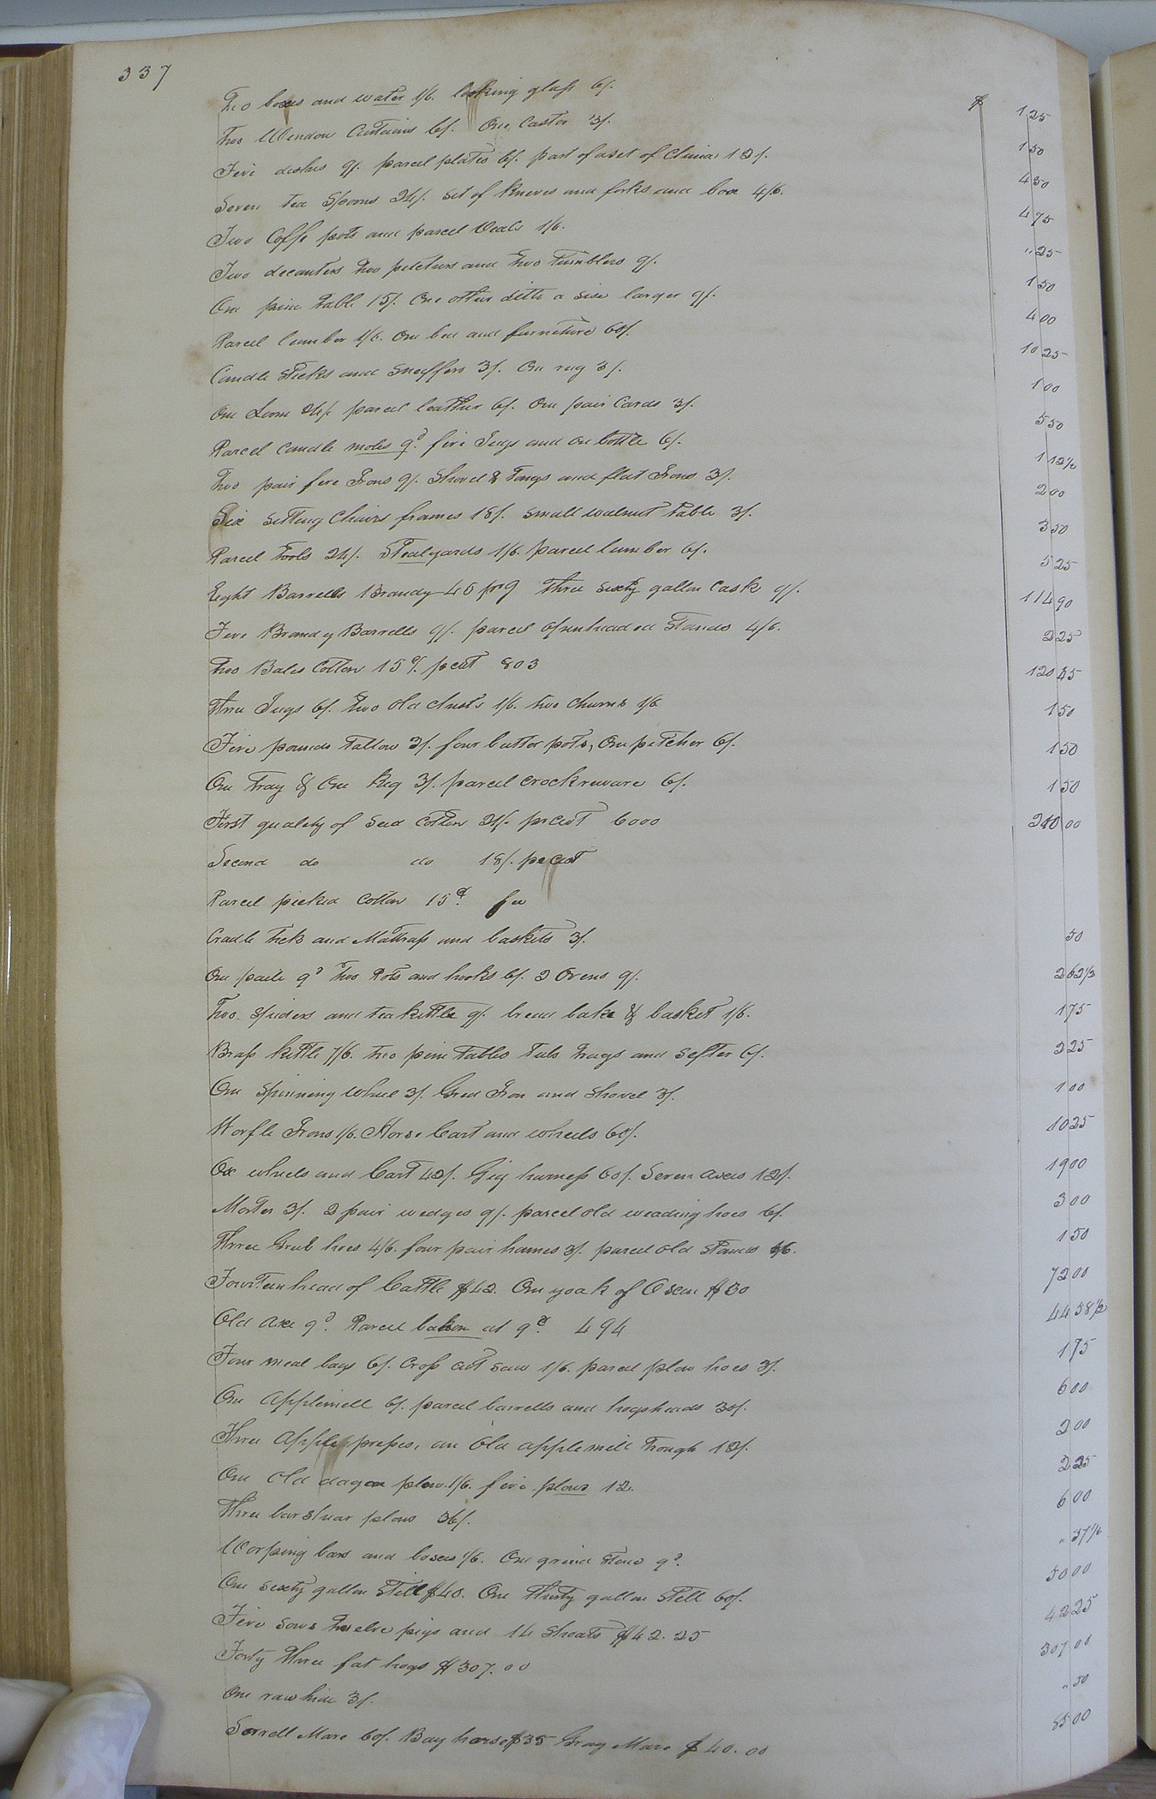 337
Two boxes and water 1/6. looking glass 6/. $ 1 25
Two Window Curtains 6/. One Castor 3/. 1 50
Five dishes 9/. parcel plates 6/. part of a set of China 12/. 4 50
Seven tea Spoons 24/. Set of Knives and forks and box 4/6. 4 75
Two Coffe pots and parcel Veals 1/6. " 25
Two decanters two pitchers and two tumblers 9/. 1 50
One pine table 15/. One other ditto a size larger 9/. 4 00
Parcel lumber 1/6. One bed and furniture 60/. 10 25
Candle Sticks and Snuffers 3/. One rug 3/. 1 00
One Loom 24/. parcel leather 6/. One pair Cards 3/. 5 50
Parcel candle moles 9d. five Jugs and one bottle 6/. 1 12½
Two pair fire Irons 9/. Shovel & Tongs and flat Irons 3/. 2 00
Six Setting Chairs frames 18/. Small walnut table 3/. 3 50
Parcel Tools 24/. Stealyards 1/6. parcel lumber 6/. 5 25
Eight Barrells Brandy 45 pr 9 three sixty gallon Cask 9/. 114 90
Five Brandy Barrells 9/. parcel of unheaded Stands 4/6. 2 25
Two Bales Cotton 15 pcut 803 120 45
Three Jugs 6/. two old chests 1/6. two churns 1/6 1 50
Five pounds tallow 3/. four butter pots, One pitcher 6/. 1 50
One Tray & One Keg 3/. parcel crockreware 6/. 1 50
First quality of Seed Cotton 24/. pr cut 6000 240 00
Second do do 18/. pr cut
Parcel picked Cotton 15d.
Cradle tick and Mattrass and baskets 3/. 50
One paile 9d two Pots and hooks 6/. 2 Ovens 9/. 2 62½
Two Spiders and tea kettle 9/. bread bake & basket 1/6. 1 75
Brass kettle 7/6. two pine tables tubs trays and Sefter 6/. 2 25
One Spinning wheel 3/. Gred Iron and Shovel 3/. 1 00
Worfle Irons 1/6. Horse Cart and wheels 60/. 10 25
Ox wheels and Cart 42/. Gig harness 60/. Seven axes 12/. 19 00
Morter 3/. 2 pair wedges 9/. parcel old weading hoes 6/. 3 00
Three Grub hoes 4/6. four pair hames 3/. parcel old Stands 1/6. 1 50
Fourteen head of Cattle $42. One yoak of Oxen $30 72 00
Old axe 9d. Parcel bakon at 9d. 494 44 58½
Four meal bags 6/. Cross cut saw 1/6. parcel plow hoes 3/. 1 75
One Applemill 6/. parcel barrells and hogsheads 30/. 6 00
Three Apple presses, an Old applemill Trough 12/. 2 00
One Old dagon plow 1/6. five plows 12. 2 25
Three barshear plows 36/. 6 00
Worping bars and boxes 1/6. One grind Stone 9d. " 37½
One sixty gallon Still $40. One thirty gallon Still 60/. 50 00
Five Sows twelve pigs and 14 Shoats $42.25 42 25
Forty three fat hogs $307.00 307 00
One raw hide 3/. " 50
Sorrell Mare 60/. Bay horse $35 Gray Mare $40.00 85 00